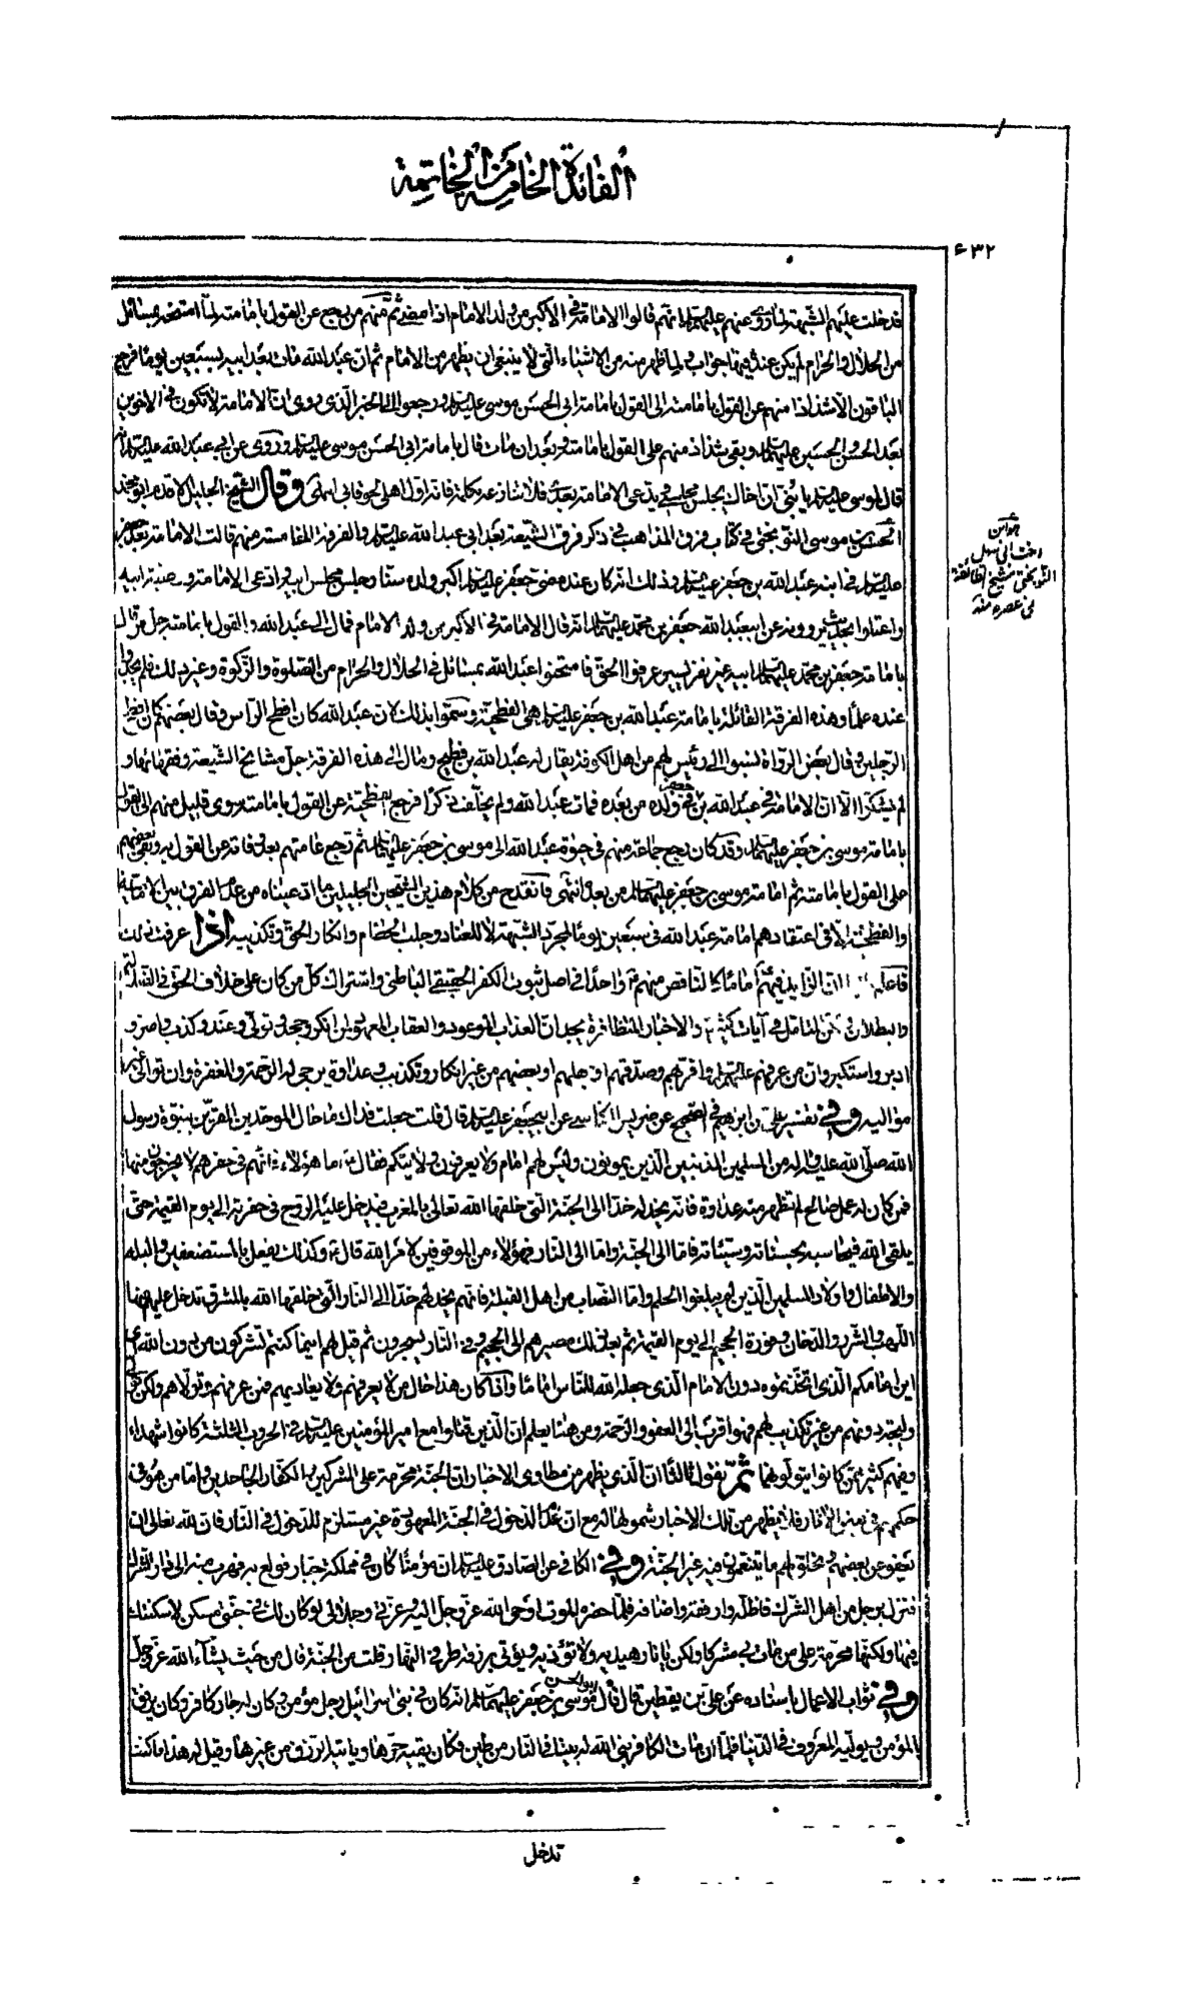 الفائدة الخامسة من الخاتمة
٦٣٢
فدخلت عليهم الشبهة لما روى عنهم عليهم السلام انهم قالوا الامامة في الاكبر من ولد الامام اذا مضى ثم منهم من رجع عن القول بامامته لما امتحنه بمسائل
من الحلال والحرام لم يكن عنده فيها جواب ولما ظهر منه من الاشياء التي لا ينبغي ان يظهر من الامام ثم ان عبد الله مات بعد ابيه بسبعين يوما فرجع
الباقون الا شذاذا منهم عن القول بامامته الى القول بامامة ابى الحسن موسى عليه السلام ورجعوا الى الخبر الذى روى ان الامامة لا تكون في الاخوين
بعد الحسن والحسين عليهما السلام وبقى شذاذ منهم على القول بامامته وبعد ان مات قال بامامة ابى الحسن موسى عليه السلام وروى عن ابى عبد الله عليه السلام انه
قال لموسى عليه السلام يا بنى ان اخاك يجلس مجلسي ويدعى الامامة بعدى فلا تنازعه بكلمة فانه اول اهلى لحوقا بى انتهى وقال الشيخ الجليل الاقدم ابو محمد
الحسن بن موسى النوبختى في كتاب فرق المذاهب في ذكر فرق الشيعة بعد ابى عبد الله عليه السلام والفرقة الخامسة منهم قالت الامامة بعد جعفر
عليه السلام في ابنه عبد الله بن جعفر عليه السلام وذلك انه كان عند مضى جعفر عليه السلام اكبر ولده سنا وجلس مجلس ابيه وادعى الامامة ووصية ابيه
واعتلوا بحديث يروونه عن ابيعبد الله جعفر بن محمد عليهما السلام انه قال الامامة في الاكبر من ولد الامام فمال الى عبد الله والقول بامامته جل من قال
بامامة جعفر بن محمد عليهما السلام ابيه غير نفر يسير عرفوا الحق فامتحنوا عبد الله بمسائل في الحلال والحرام من الصلوة والزكوة وغير ذلك فلم يجدوا
عنده علما وهذه الفرقة القائلة بامامة عبد الله بن جعفر عليه السلام هى الفطحية وسموا بذلك لان عبد الله كان افطح الراس وقال بعضهم كان افطح
الرجلين وقال بعض الرواة نسبوا الى رئيس لهم من اهل الكوفة يقال له عبد الله بن فطيح ومال الى هذه الفرقة جل مشايخ الشيعة وفقهائها و
لم يشكوا الا ان الامامة في عبد الله بن جعفر وفي ولده من بعده فمات عبد الله ولم يخلف ذكرا فرجع الفطحية عن القول بامامته سوى قليل منهم الى القول
بامامة موسى بن جعفر عليهما السلام وقد كان رجع جماعة منهم في حيوة عبد الله الى موسى بن جعفر عليهما السلام ثم رجع عامتهم بعد وفاته عن القول به وبقى بعضهم
على القول بامامته ثم امامة موسى بن جعفر عليهما السلام من بعده انتهى فانقدح من كلام هذين الشيخين الجليلين ما ادعيناه من عدم الفرق بين الامامية
والفطحية الا في اعتقادهم امامة عبد الله في سبعين يوما لمجرد الشبهة لا للعناد وجلب الحطام وانكار الحق وتكذيبه اذا عرفت ذلك
فاعلم ان الزايد فيهم اماما كالناقص منهم واحدا في اصل ثبوت الكفر الحقيقي الباطنى واشتراك كل من كان على خلاف الحق في الضلالة
والبطلان ولكن المتامل في آيات كثيرة والاخبار المتظافرة يجد ان العذاب الموعود والعقاب المعهود لمن انكر وجحد وتولى وعند وكذب واصر و
ادبر واستكبر وان من عرفهم عليهم السلام واقر بهم وصدقهم او جهلهم او بعضهم من غير انكار وتكذيب وعداوة يرجى له الرحمة والمغفرة وان توالى غير
مواليه وفي تفسير على بن ابرهيم في الصحيح عن ضريس الكناسى عن ابيجعفر عليه السلام قال قلت جعلت فداك ما حال الموحدين المقرين بنبوة رسول
الله صلى الله عليه واله من المسلمين المذنبين الذين يموتون وليس لهم امام ولا يعرفون ولايتكم فقال اما هؤلاء فانهم في حفرهم لا يخرجون منها
فمن كان له عمل صالح لم تظهر منه عداوة فانه يخد له خدا الى الجنة التي خلقها الله تعالى بالمغرب فيدخل عليه الروح في حفرته الى يوم القيمة حتى
يلقى الله فيحاسبه بحسناته وسيئاته فاما الى الجنة واما الى النار فهؤلاء من الموقوفين لامر الله قال وكذلك يفعل بالمستضعفين والبله
والاطفال واولاد المسلمين الذين لم يبلغوا الحلم واما النصاب من اهل القبلة فانهم يخد لهم خدا الى النار التى خلقها الله بالمشرق تدخل عليهم منها
اللهب والشرر والدخان وفورة الجحيم الى يوم القيمة ثم بعد ذلك مصيرهم الى الجحيم وفي النار يسجرون ثم قيل لهم اينما كنتم تشركون من دون الله اى
اين امامكم الذى اتخذتموه دون الامام الذى جعله الله للناس اماما واذا كان هذا حال من لا يعرفهم ولا يعاديهم فمن عرفهم وتولاهم ولكن
واحد منهم من غير تكذيب لهم فهو اقرب الى العفو والرحمة ومن هنا يعلم ان الذين قتلوا مع امير المؤمنين عليه السلام في الحروب الثلثة كانوا شهداء
وفيهم كثير ممن كانوا يتولونهما ثم نقول ثالثا ان الذي يظهر من مطاوى الاخبار ان الجنة محرمة على المشركين والكفار الجاحدين واما من هو في
حكمهم في بعض الاثار فلا يظهر من تلك الاخبار شمولها له مع ان عدم الدخول في الجنة المعهودة غير مستلزم للدخول في النار فان لله تعالى ان
يعفو عن بعضهم ويخلق لهم ما يتنعمون فيه غير الجنة وفي الكافى عن الصادق عليه السلام ان مؤمنا كان في مملكة جبار فولع به فهرب منه الى دار الشرك
فنزل برجل من اهل الشرك فاظله وارفقه واضافه فلما حضره الموت اوحى الله عز وجل اليه وعزتى وجلالى لو كان لك في جنتى مسكن لاسكنتك
فيها ولكنها محرمة على من مات بى مشركا ولكن يا نار هيديه ولا تؤذيه ويؤتى برزقه طرفى النهار قلت من الجنة قال من حيث يشاء الله عز وجل
وفي ثواب الاعمال باسناده عن على بن يقطين قال قال ابو الحسن موسى بن جعفر عليهما السلام انه كان في بنى اسرائيل رجل مؤمن وكان له جار كافر وكان يرفق
بالمؤمن ويوليه المعروف في الدنيا فلما ان مات الكافر بنى الله له بيتا في النار من طين فكان يقيه حرها وياتيه الرزق من غيرها وقيل له هذا ما كنت
هو ابن
اخت ابى سهل
النوبختى شيخ الطائفة
فى عصره منه
تدخل